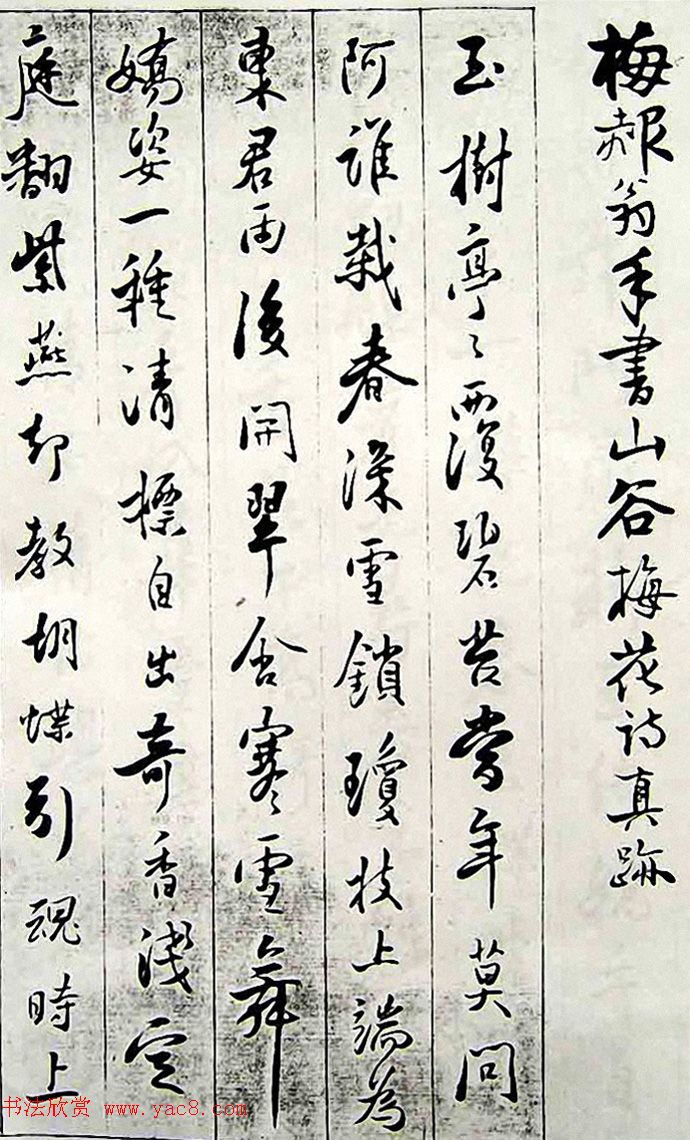 梅赧翁手書山谷梅花詩真跡
玉樹亭々覆碧苔當年莫問
阿誰栽春深雪鎖瓊枝上端為
東君雨後開翠含寒雪舞
嬌姿一種清標自出奇香淺空
庭翻紫燕却教胡蝶引魂時上
书法欣赏 www.yac8.com